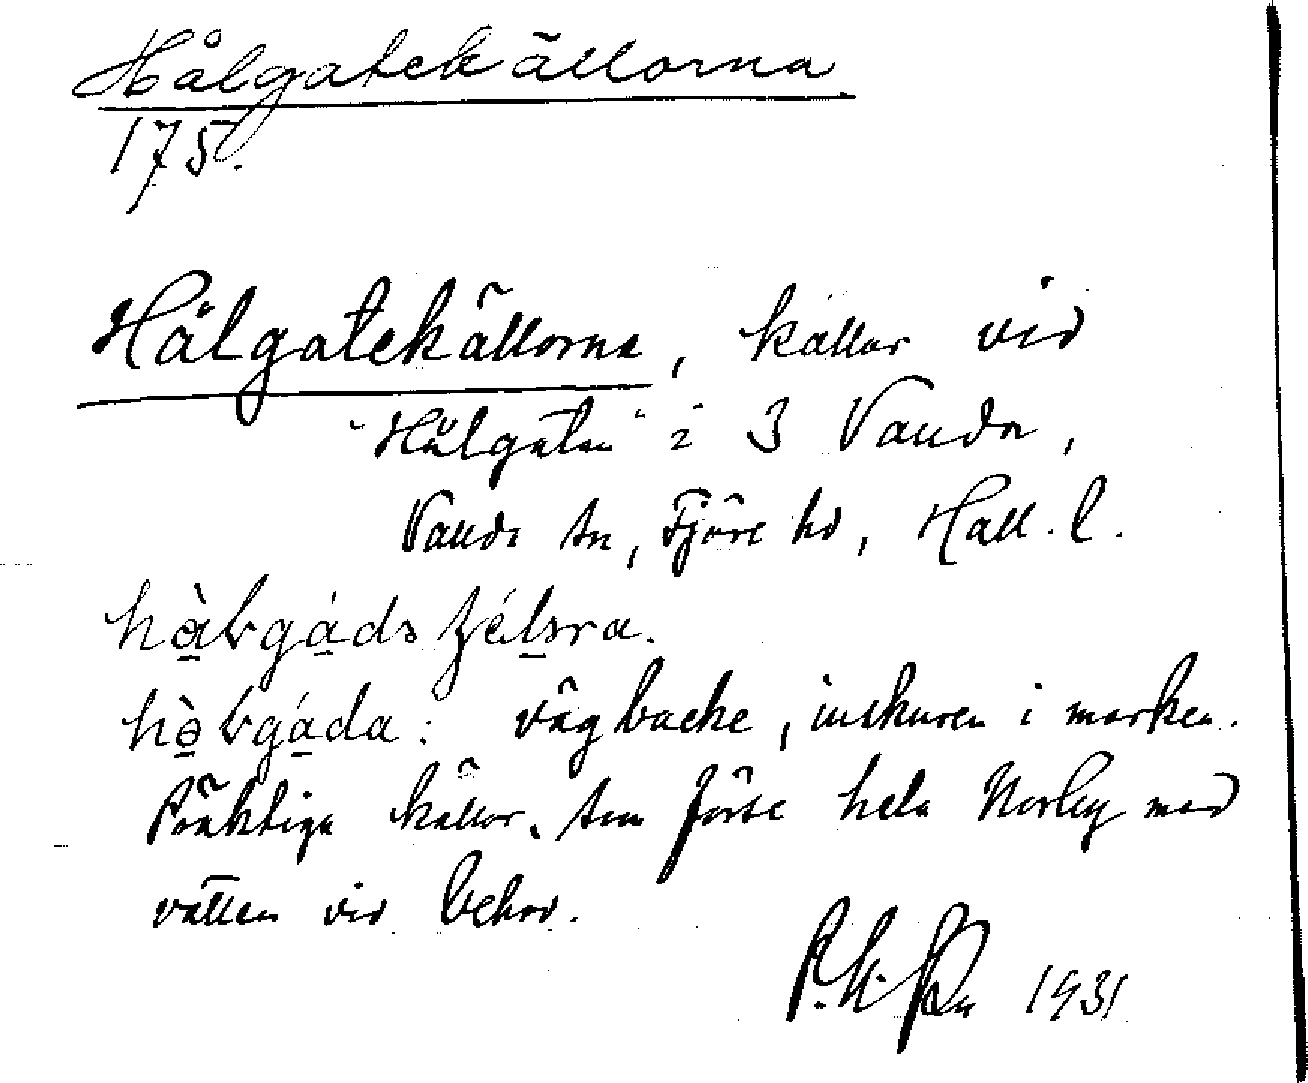 Hålgatekällorna
175.
Hålgatekällorna, källor vid
"Hålgatan" i 3 Vanda,
Vands sn, Fjäre hd, Hall. l.
vägbacke, inskuren i marken.
Präktiga källor, som förse hela Norby med
vatten vid behov.
1931